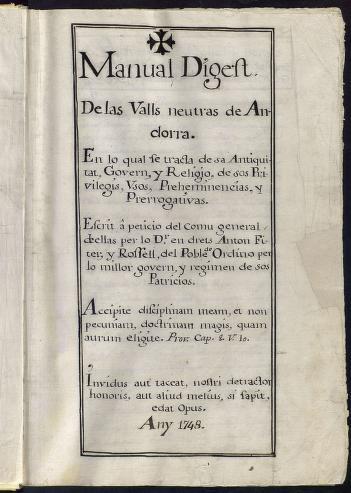 Manual Digest.
De las Valls neutras de An-
dorra.
En lo qual se tracta de sa Antiqui-
tat, Govern, y Religio, de sos Pri-
vilegis, Usos, Preheminencias, y
Prerrogativas.
Escrit â peticio del Comu general
dellas per lo Dr. en drets Anton Fi-
ter, y Rossell, del Poble de Ordino per
lo millor govern, y regimen de sos
Patricios.
Accipite disciplinam meam, et non
pecuniam, doctrinam magis, quam
aurum eligite. Prov. Cap. 8. V. 10.
Invidus aut taceat, nostri detractor
honoris, aut aliud melius, si sapit,
edat Opus.
Any 1748.